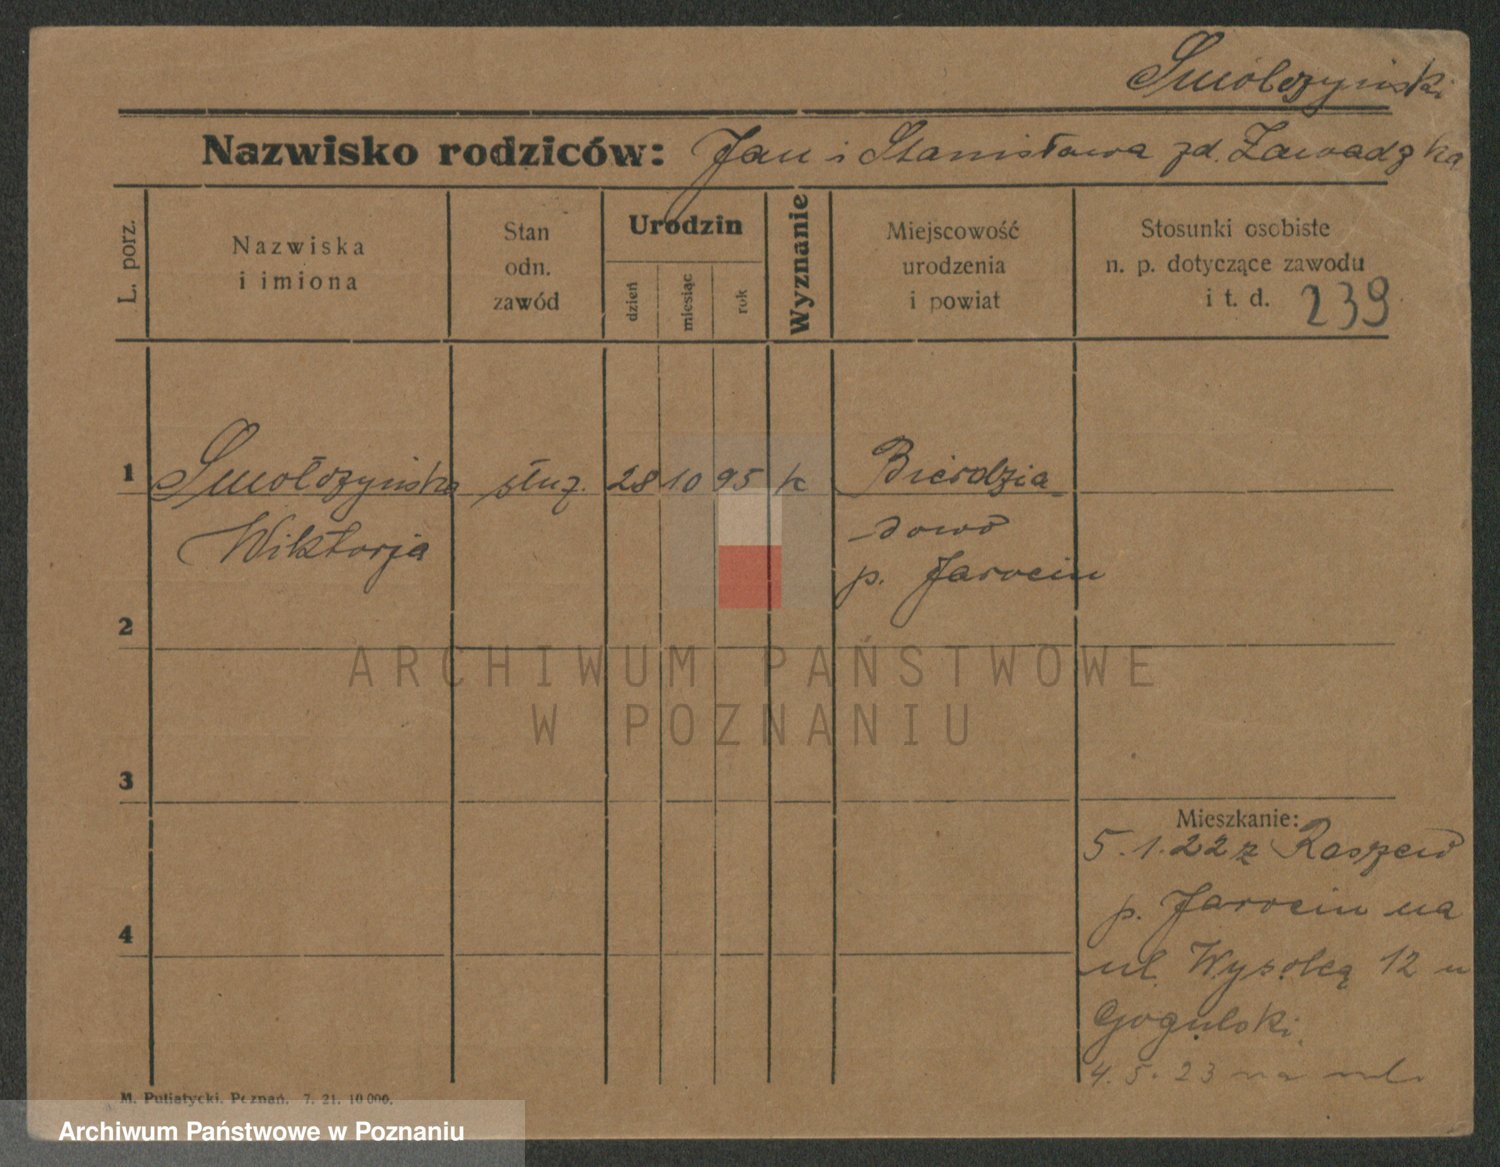 Smólczyński
Nazwisko rodziców: Jan i Stanisława zd. Zawadzka
L. porz.
Nazwiska
i imiona
Stan
odn.
zawód
Urodzin
dzień
miesiąc
rok
Wyznanie
Miejscowość
urodzenia
i powiat
Stosunki osobiste
n. p. dotyczące zawodu
i t. d. 239
1 Smołczyńska służ. 28 10 95 k Bierdzia
Wiktorja
-dowo
p. Jarocin
2
ARCHIWUM PAŃSTWOWE
W POZNANIU
3
Mieszkanie:
5.1.22 z Raszew
p. Jarocin na
4
ul. Wysoką 12 u
Gogulski.
4.5.23 na
M. Putiatycki, Poznań. 7. 21. 10 000.
Archiwum Państwowe w Poznaniu